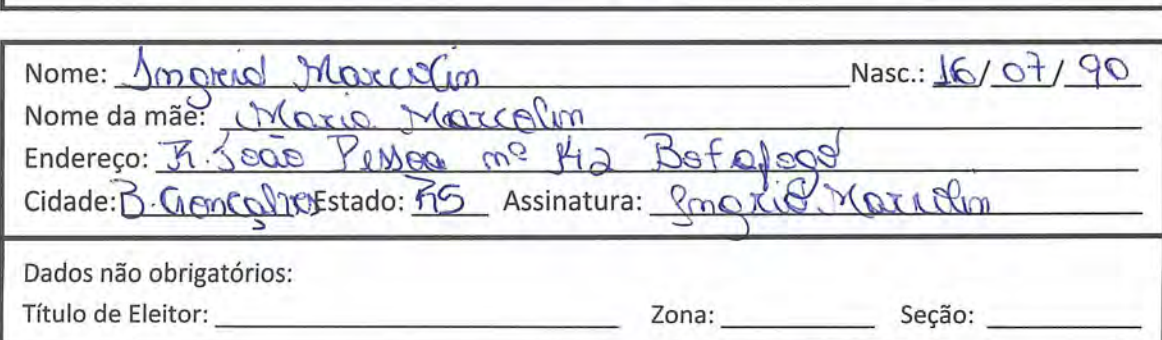 Nome: Ingrid Marcolin Nasc.: 16/07/90
Nome da mãe: Maria Marcolin
Endereço: R. João Pessoa nº 142 Botafogo
Cidade: B. Gonçalves Estado: RS Assinatura: Ingrid Marcolin
Dados não obrigatórios:
Título de Eleitor: Zona: Seção: